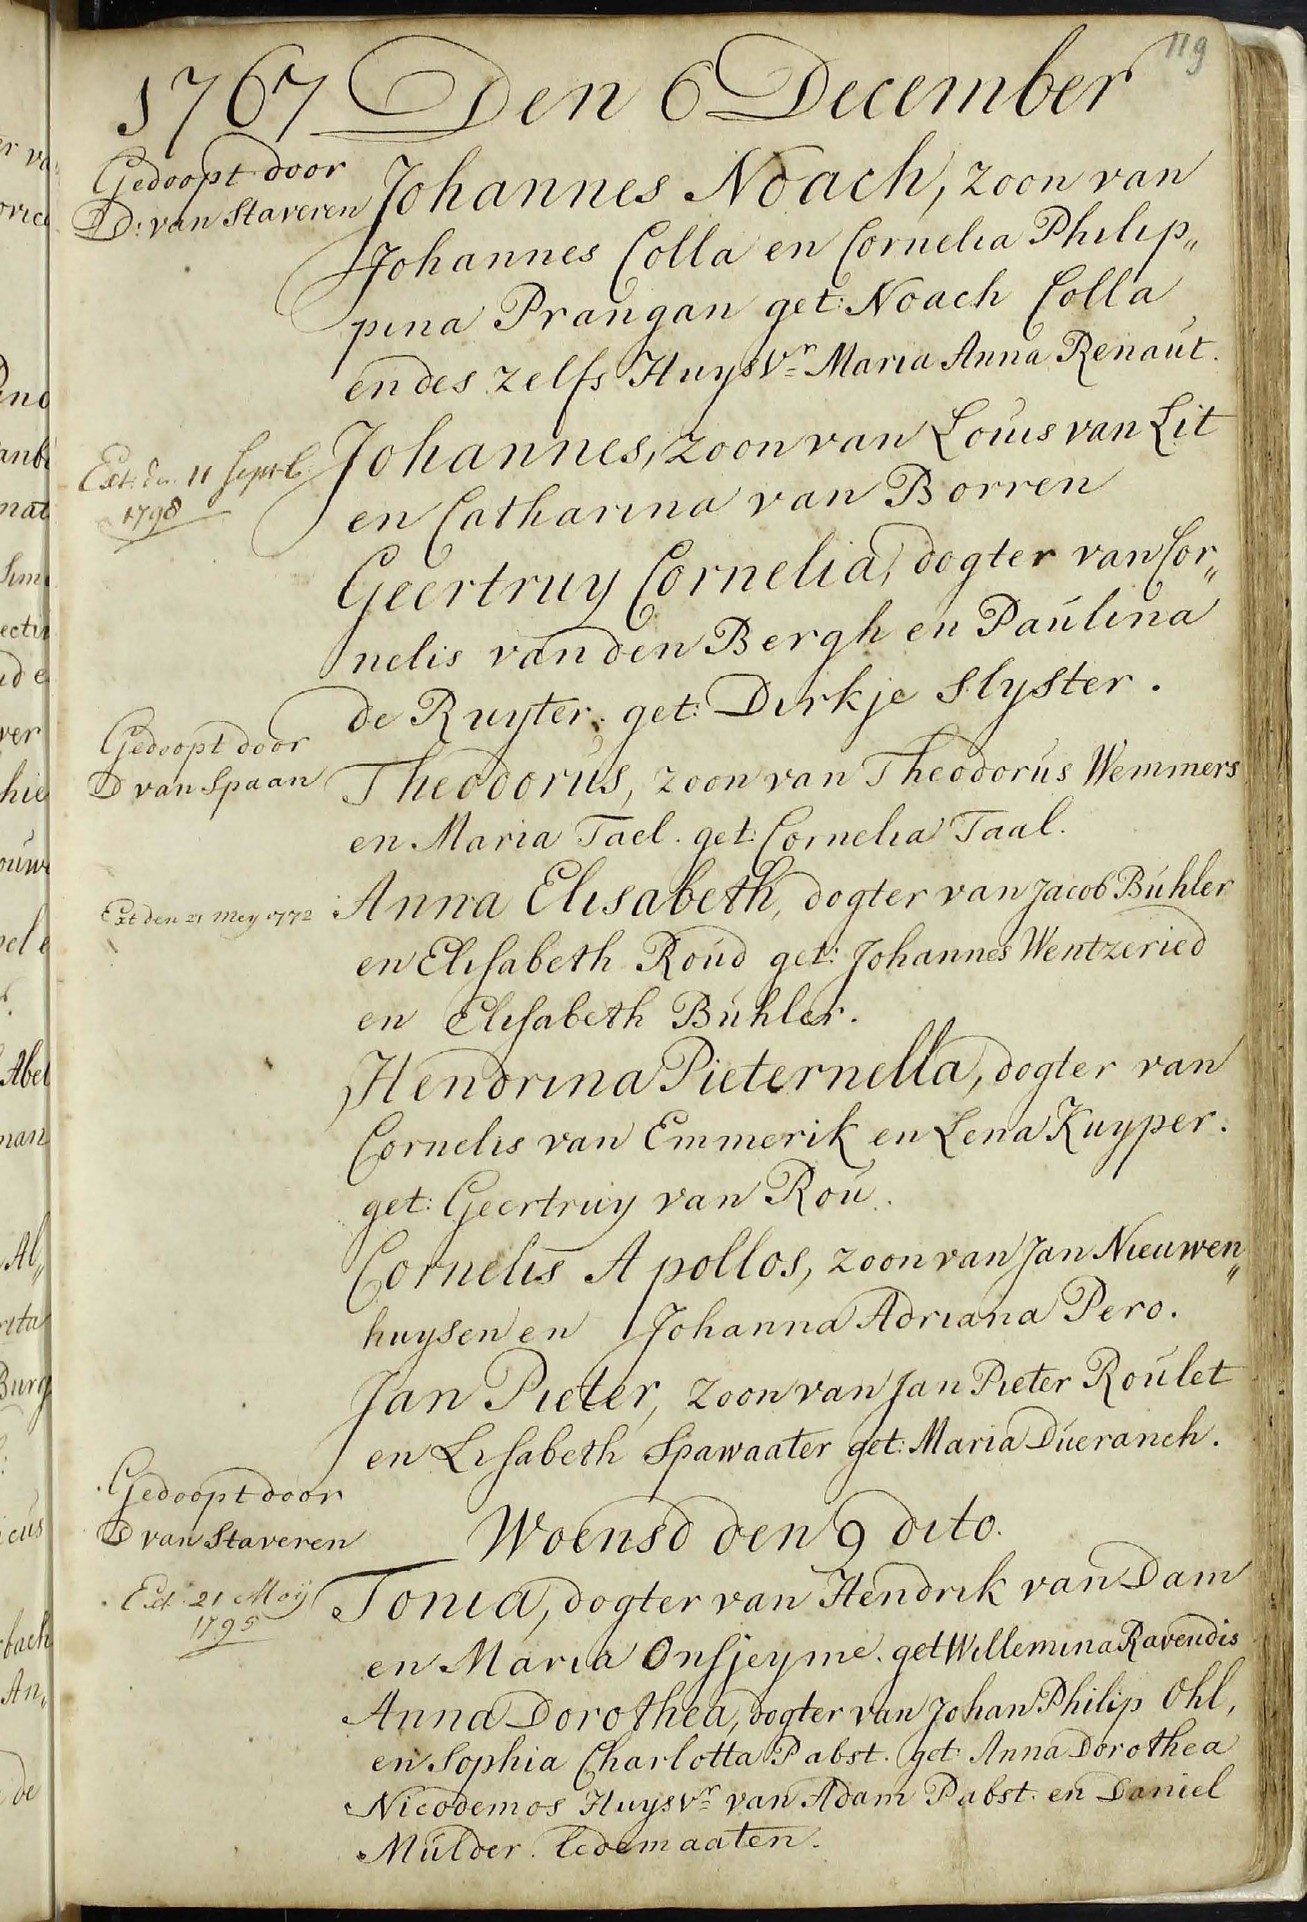 119
1767 Den 6 December
Gedoopt door
D: van Staveren
Johannes Noach, zoon van
Johannes Colla en Cornelia Philip„
pina Prangan get: Noach Colla
en des zelfs Huysvr Maria Anna Renaut.
Ext: den 11 Septb
1798
Johannes, zoon van Louis van Lit
en Catharina van Borren
Geertruy Cornelia, dogter van Cor„
nelis van den Bergh en Paulina
de Ruyter. get: Dirkje Slyster.
Gedoopt door
D van Spaan
Theodorus, zoon van Theodorus Wemmers
en Maria Tael. get: Cornelia Taal.
Ext den 21 Mey 1772
Anna Elisabeth, dogter van Jacob Buhler
en Elisabeth Roud get: Johannes Wentzeried
en Elisabeth Buhler.
Hendrina Pieternella, dogter van
Cornelis van Emmerik en Lena Kuyper.
get: Geertruy van Rou.
Cornelis Apollos, zoon van Jan Nieuwen„
huysen en Johanna Adriana Pero.
Jan Pieter, zoon van Jan Pieter Roulet
en Lisabeth Spawaater get: Maria Dueranch.
Gedoopt door
D van Staveren
Woensd den 9 dito.
Ext 21 Meij
1795
Tonia, dogter van Hendrik van Dam
en Maria Onsjeyme. get Willemina Ravendis
Anna Dorothea, dogter van Johan Philip Ohl,
en Sophia Charlotta Pabst. get: Anna Dorothea
Nicodemos Huysvr van Adam Pabst. en Daniel
Mulder. ledemaaten.